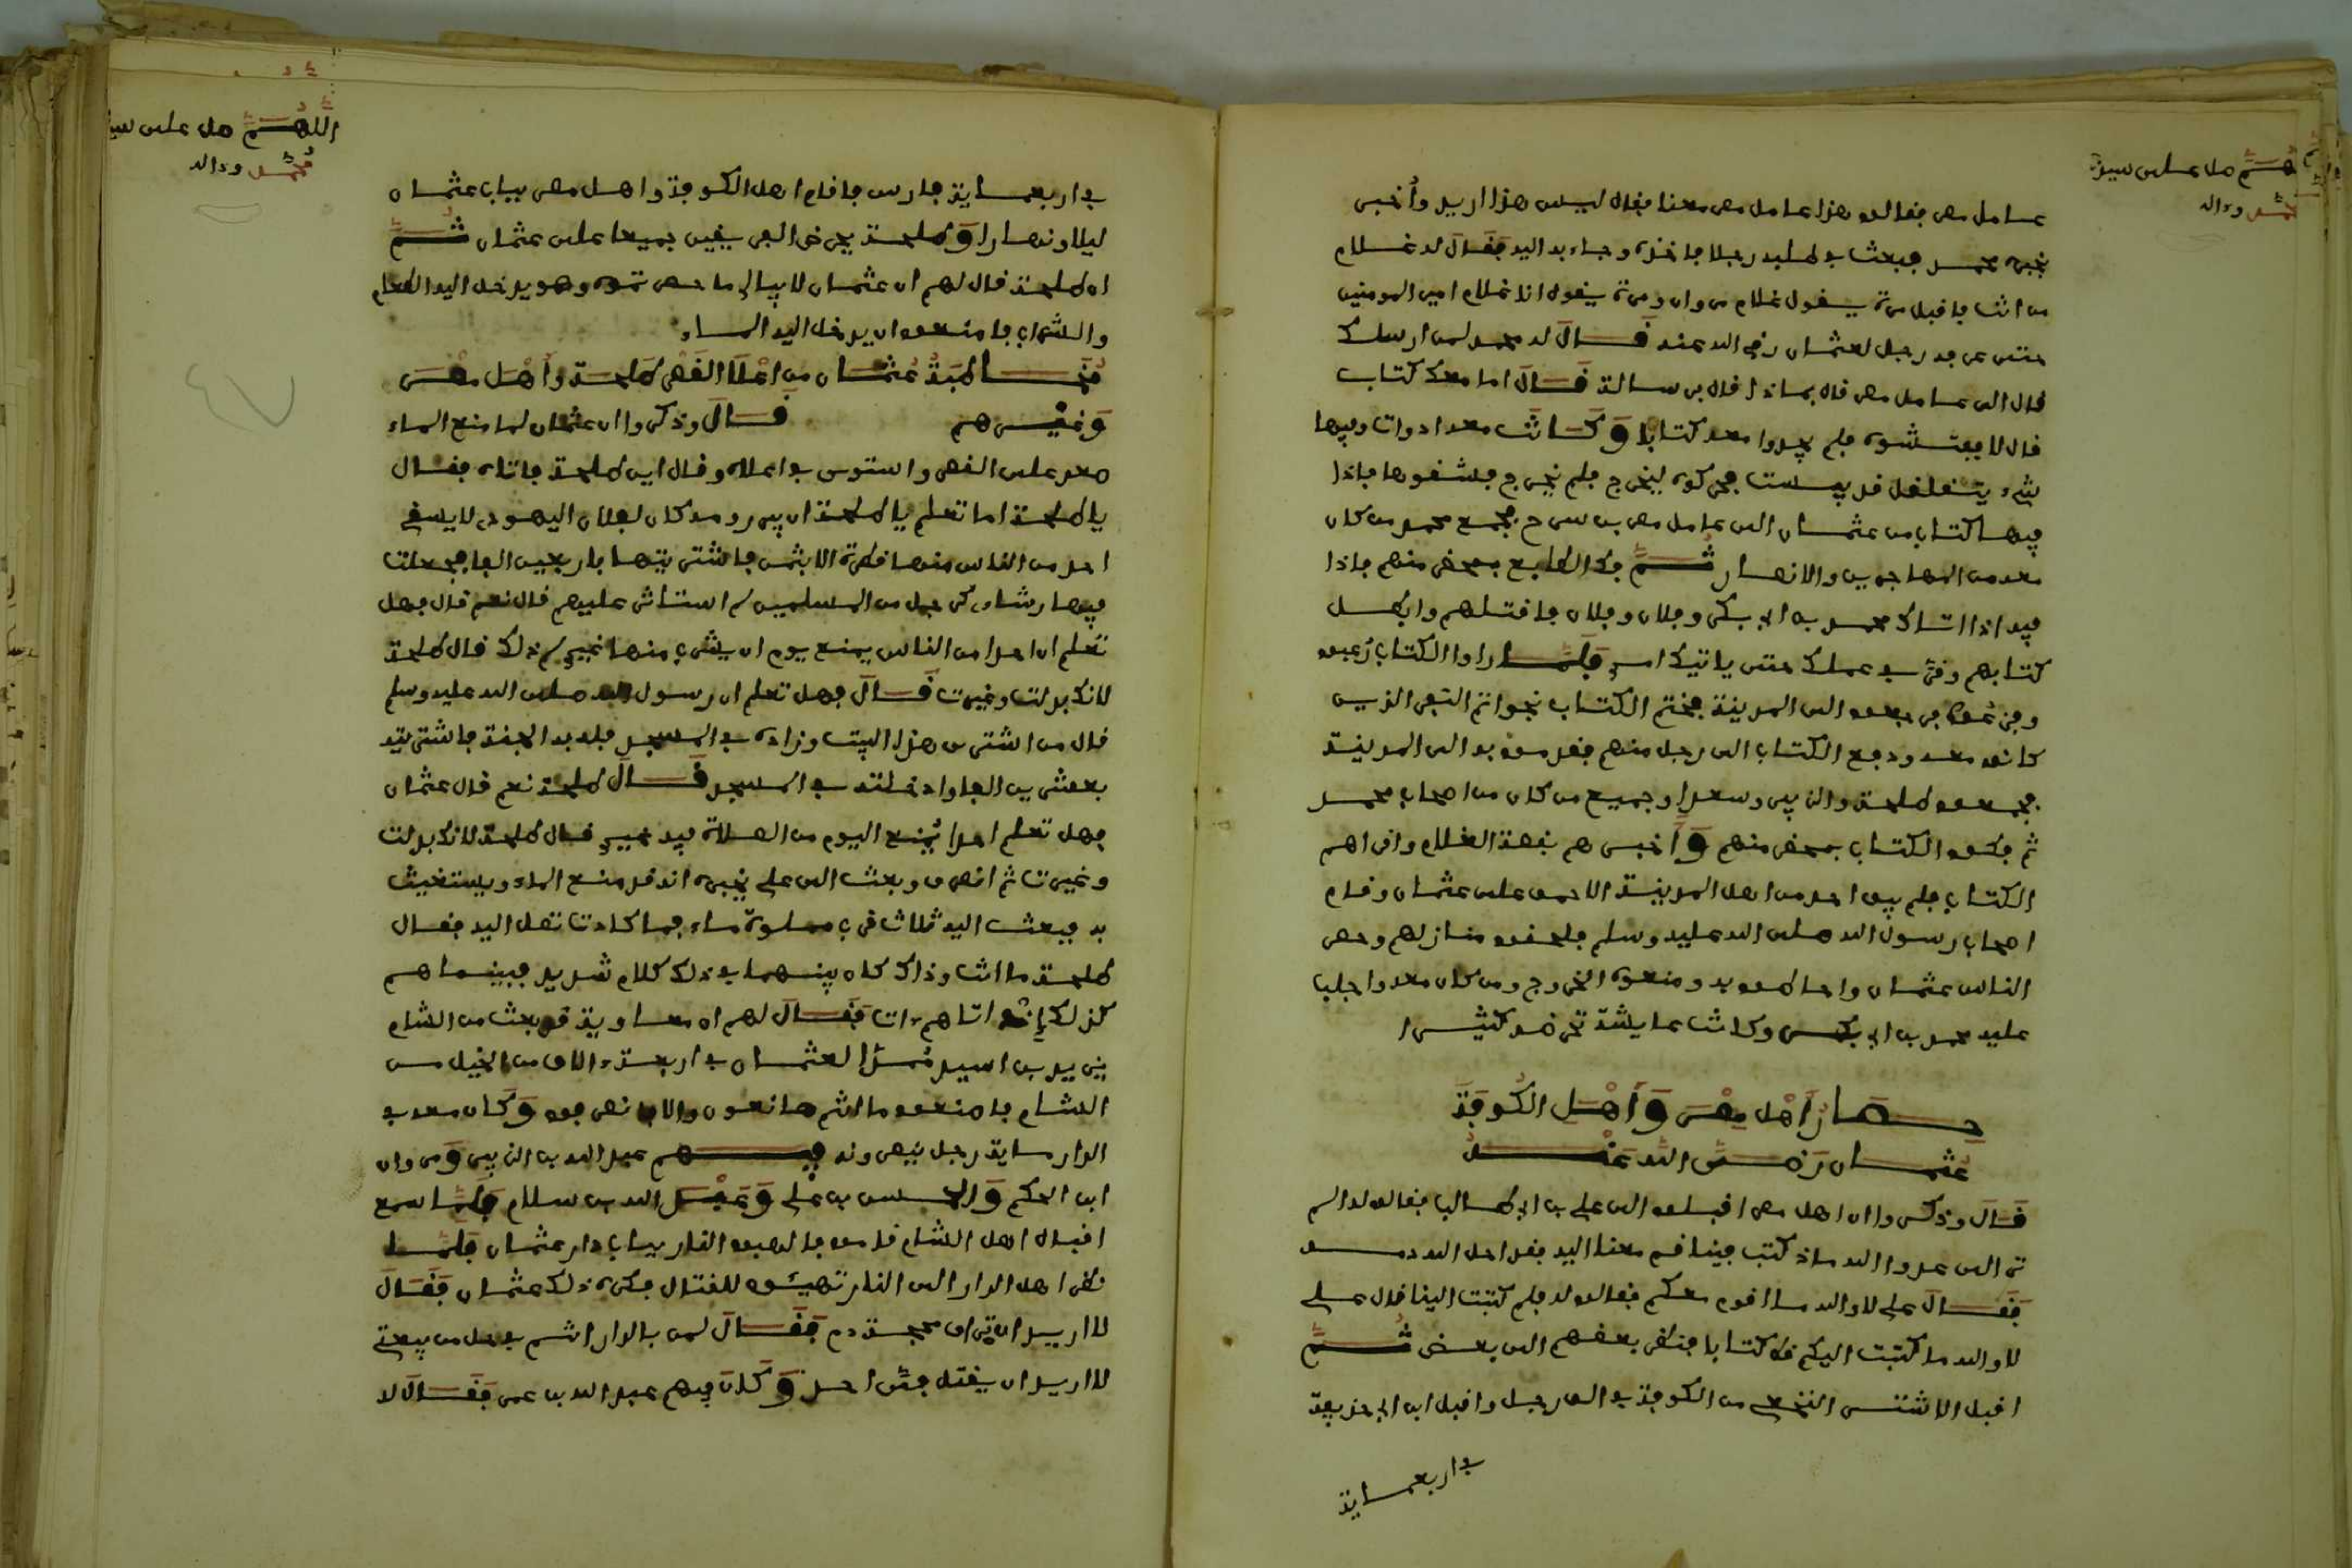 اللهم صل على سيدنا
محمد وءاله
عامل مصر فقالوا هذا عامل مصر معنا فقال ليس هذا اريد وأخبر
بخبره محمد فبعث في طلبه رجلا فاخذه وجاء به اليه فقال له غلام
من انت فاقبل مرة يقول غلام مروان ومرة يقول انا غلام امير المومنين
حتى عرفه رجل لعثمان رضي الله عنه قال له محمد لمن ارسلك
قال الى عامل مصر قال بماذا قال برسالة قال اما معك كتاب
قال لا ففتشوه فلم يجدوا معه كتابا وكانت معه ادوات وفيها
شيء يتقلقل قد يبست فحركوه ليخرج فلم يخرج فشقوها فاذا
فيها كتاب من عثمان الى عامل مصر بن سرح فجمع محمد من كان
معه من المهاجرين والانصار ثم فك الطابع بمحضر منهم فاذا
فيه اذا اتاك محمد بن ابي بكر وفلان وفلان فاقتلهم وابطل
كتابهم وقر في عملك حتى ياتيك امر فلما راوا الكتاب رعبوا
وفزعوا فرجعوا الى المدينة فختم الكتاب بخواتم النفر الذين
كانوا معه ودفع الكتاب الى رجل منهم فقدموا به الى المدينة
فجمعوا طلحة والزبير وسعدا وجميع من كان من اصحاب محمد
ثم فكوا الكتاب بمحضر منهم وأخبرهم بقصة الغلام واقراهم
الكتاب فلم يبق احد من اهل المدينة الا حنق على عثمان وقام
اصحاب رسول الله صلى الله عليه وسلم فلحقوا منازلهم وحصر
الناس عثمان واحاطوا به ومنعوه الخروج ومن كان معه واجلب
عليه محمد بن ابي بكر وكانت عايشة تحرضه كثيرا
حصار أهل مصر وأهل الكوفة
عثمان رضي الله عنه
قال وذكروا ان اهل مصر اقبلوا الى علي بن ابي طالب فقالوا له الم
تر الى عدو الله ماذا كتب فينا قم معنا اليه فقد احل الله دمه
فقال علي لا والله ما اقوم معكم فقالوا له فلم كتبت الينا قال علي
لا والله ما كتبت اليكم قط كتابا فنظر بعضهم الى بعض ثم
اقبل الاشتر النخعي من الكوفة في الف رجل واقبل ابن ابي حذيفة
في اربعماية
اللهم صل على سيدنا
محمد وءاله
في اربعماية فارس فاقام اهل الكوفة واهل مصر بباب عثمان
ليلا ونهارا وطلحة يحرض الفريقين جميعا على عثمان ثم
ان طلحة قال لهم ان عثمان لا يبالي ما حصرتموه وهو يدخل اليه الطعام
والشراب فامنعوه ان يدخل اليه الماء
مخاطبة عثمان من اعلا القصر طلحة وأهل مصر
وغيرهم قال وذكروا ان عثمان لما منع الماء
صعد على القصر واستوى في اعلاه وقال اين طلحة فاتاه فقال
يا طلحة اما تعلم يا طلحة ان بير رومة كان لفلان اليهودي لا يسقي
احد من الناس منها قطرة الا بثمن فاشتريتها باربعين الفا فجعلت
فيها رشاءي كرجل من المسلمين لم استاثر عليهم قال نعم قال فهل
تعلم ان احدا من الناس يمنع يوم ان يشرب منها غيري لم ذلك قال طلحة
لانك بدلت وغيرت قال فهل تعلم ان رسول الله صلى الله عليه وسلم
قال من اشترى هذا البيت وزاده في المسجد فله به الجنة فاشتريته
بعشرين الفا وادخلته في المسجد قال طلحة نعم قال عثمان
فهل تعلم احدا يمنع اليوم من الصلاة فيه غيري قال طلحة لانك بدلت
وغيرت ثم انصرف وبعث الى علي يخبره انه قد منع الماء ويستغيث
به فبعث اليه ثلاث قرب مملوة ماء فما كادت تصل اليه فقال
طلحة ما انت وذاك كان بينهما في ذلك كلام شديد فبينما هم
كذلك إذ اتاهم ءات فقال لهم ان معاوية قد بعث من الشام
يزيد بن اسيد مددا لعثمان في اربعة ءالاف من الخيل من
الشام فاصنعوا ما انتم صانعون والا فانصرفوا وكان معه في
الدار ماية رجل ينصرونه فيهم عبد الله بن الزبير ومروان
ابن الحكم والحسن بن علي وعبد الله بن سلام فلما سمع
اقبال اهل الشام قاموا فالهبوا النار بباب دار عثمان فلما
نظر اهل الدار الى النار تهيئوا للقتال فكره ذلك عثمان فقال
لا اريد ان تهراق محجمة دم فقال لمن بالدار انتم في حل من بيعتي
لا اريد ان يقتل في احد وكان فيهم عبد الله بن عمر فقال لا